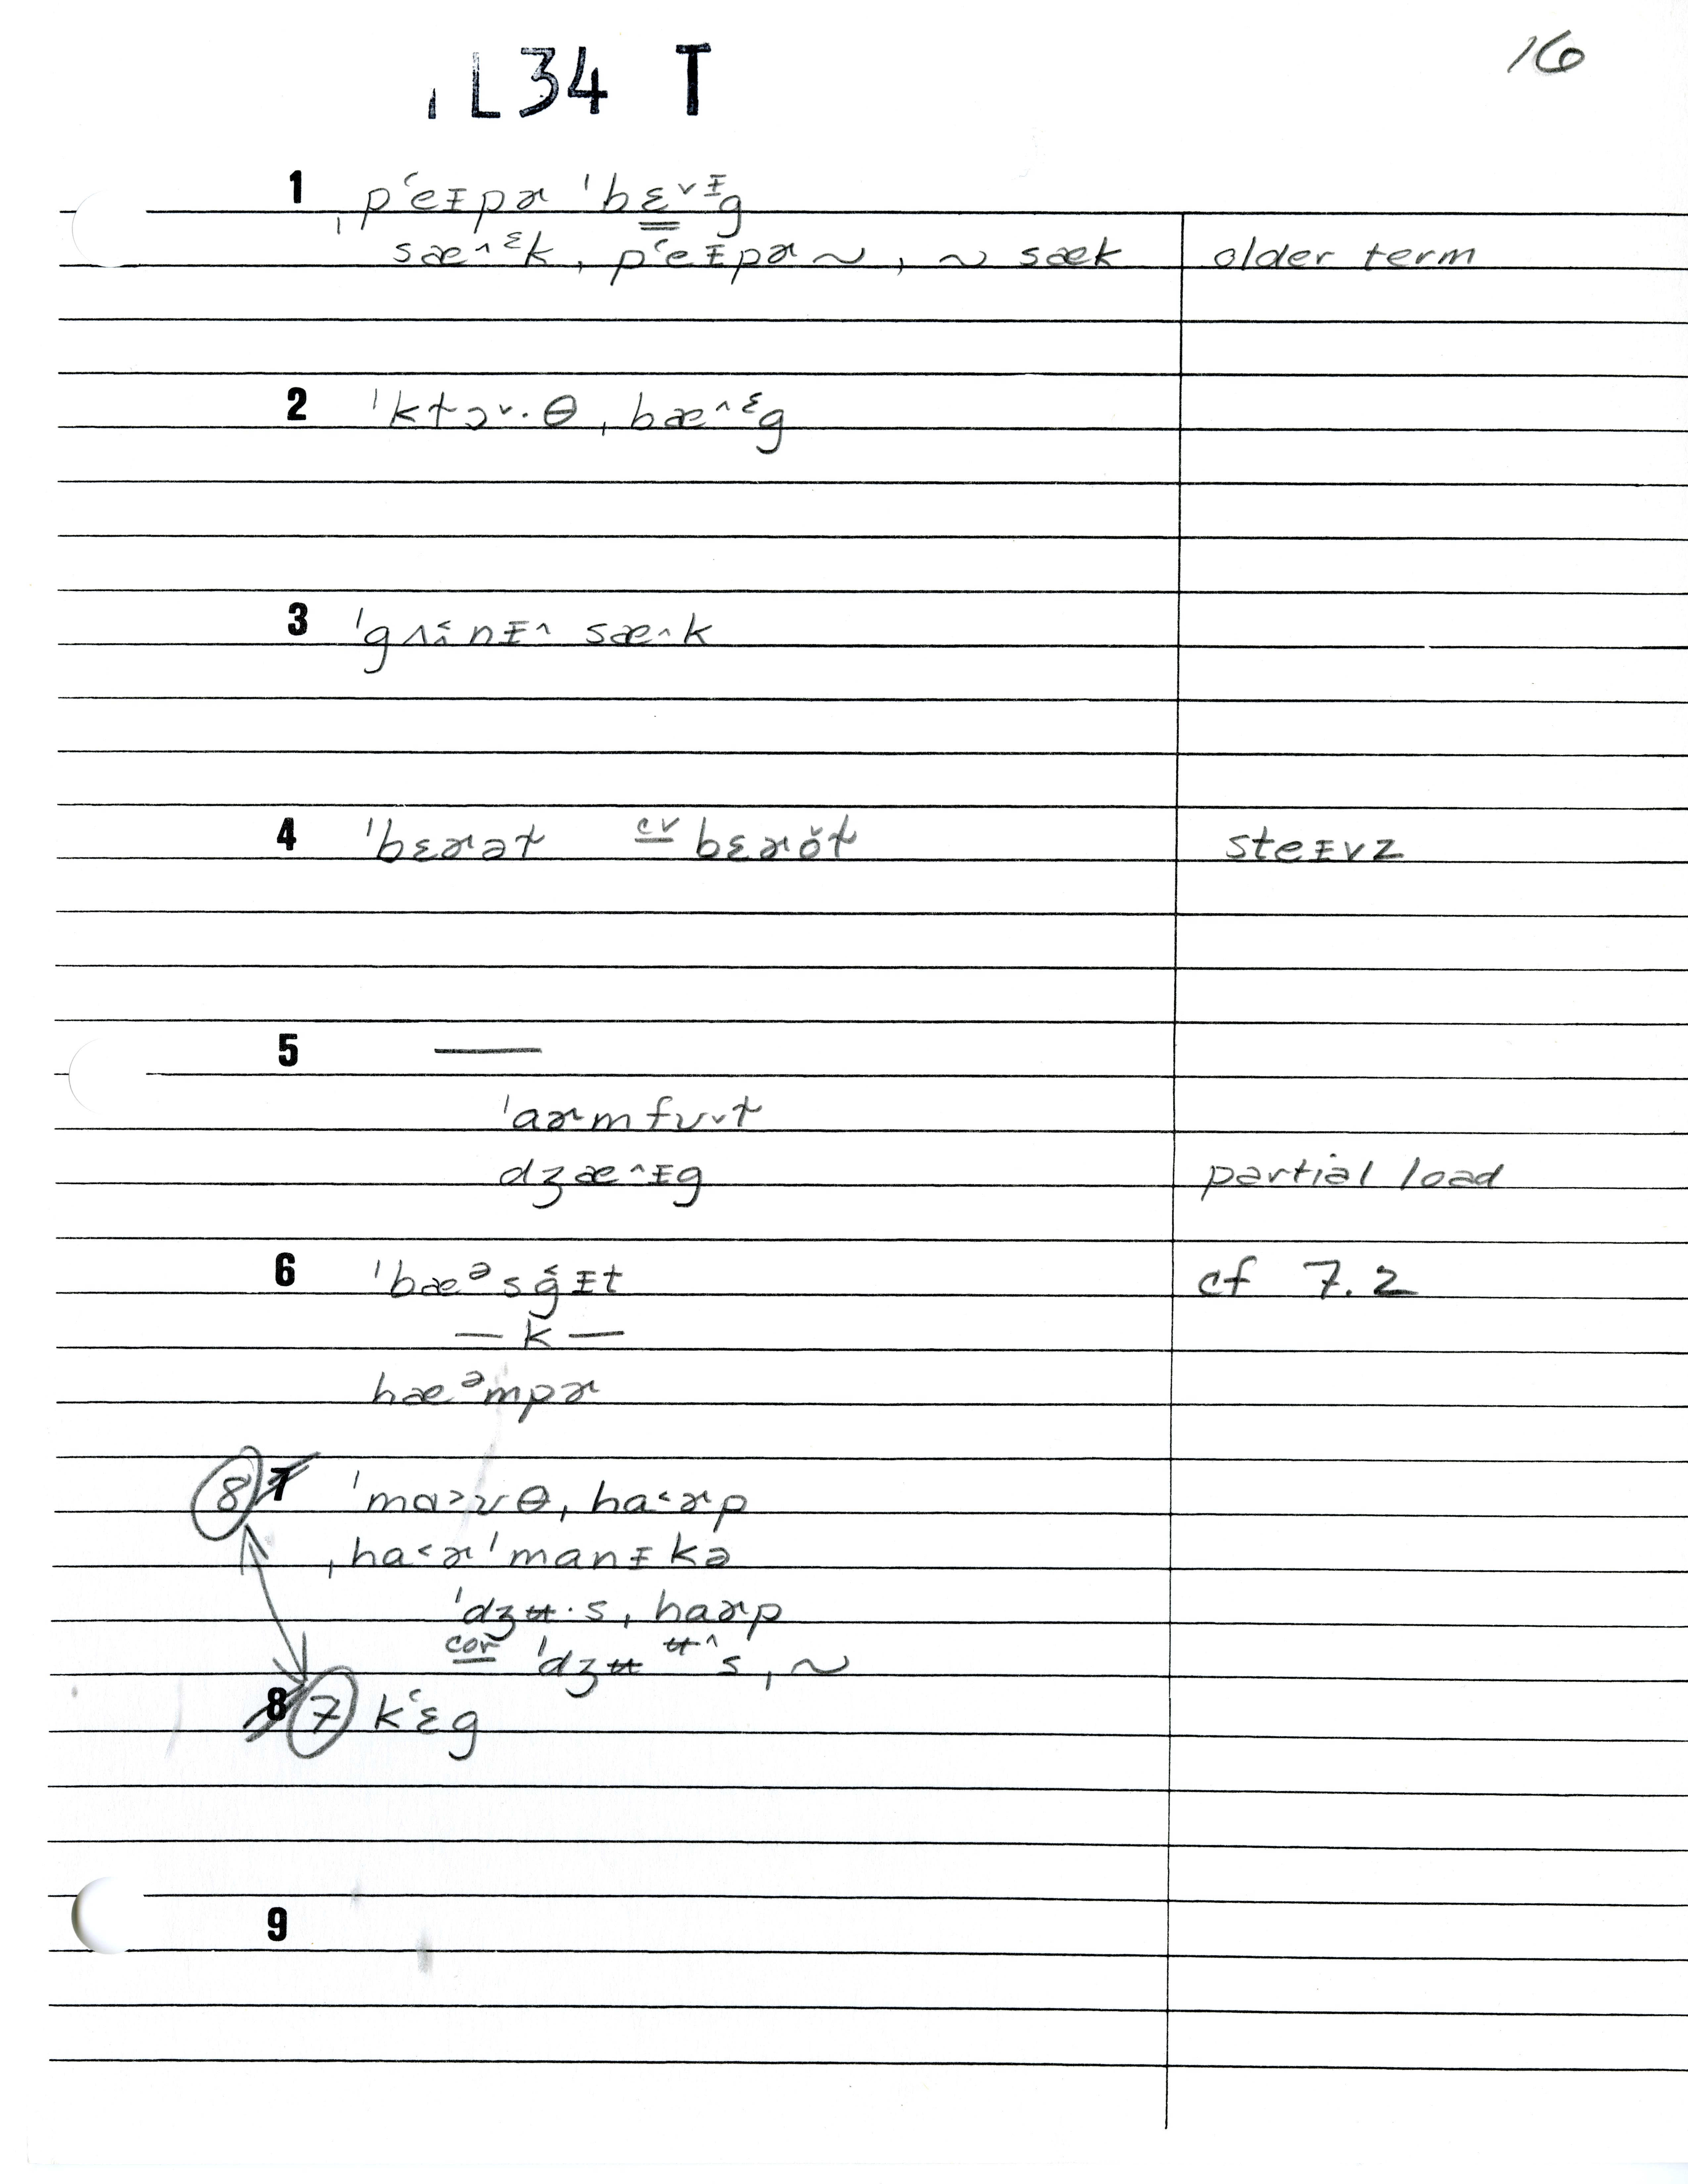 16
L34 T
1 ˌpʻeᵻpɚ ˈbɛ˅ᵻg
sæ˄ᵋk, pʻeᵻpɚ ~, ~ sæk older term
2 ˈkɫɔ˅·θ ˌbæ˄ᵋg
3 ˈgʌ nᵻ˄ sæ˄k
4 ˈbɛɚət̬ cv bɛɚŏt̬ steᵻvz
5 —
ˈaɚm fʊ˅ɫ
dʒæ˄ᵻg partial load
6 ˈbæᵊsg̊ᵻt cf 7.2
— k —
hæᵊmpɚ
8 7 ˈmɑ˃ʊθ ˌhɑ˂ɚp
ˌhɑ˂ɚˈmanᵻkə
ˈdʒʉ·s ˌhaɚp
cor ˈdʒʉ ʉ˄s ˌ~
8 7 kʻɛg
9